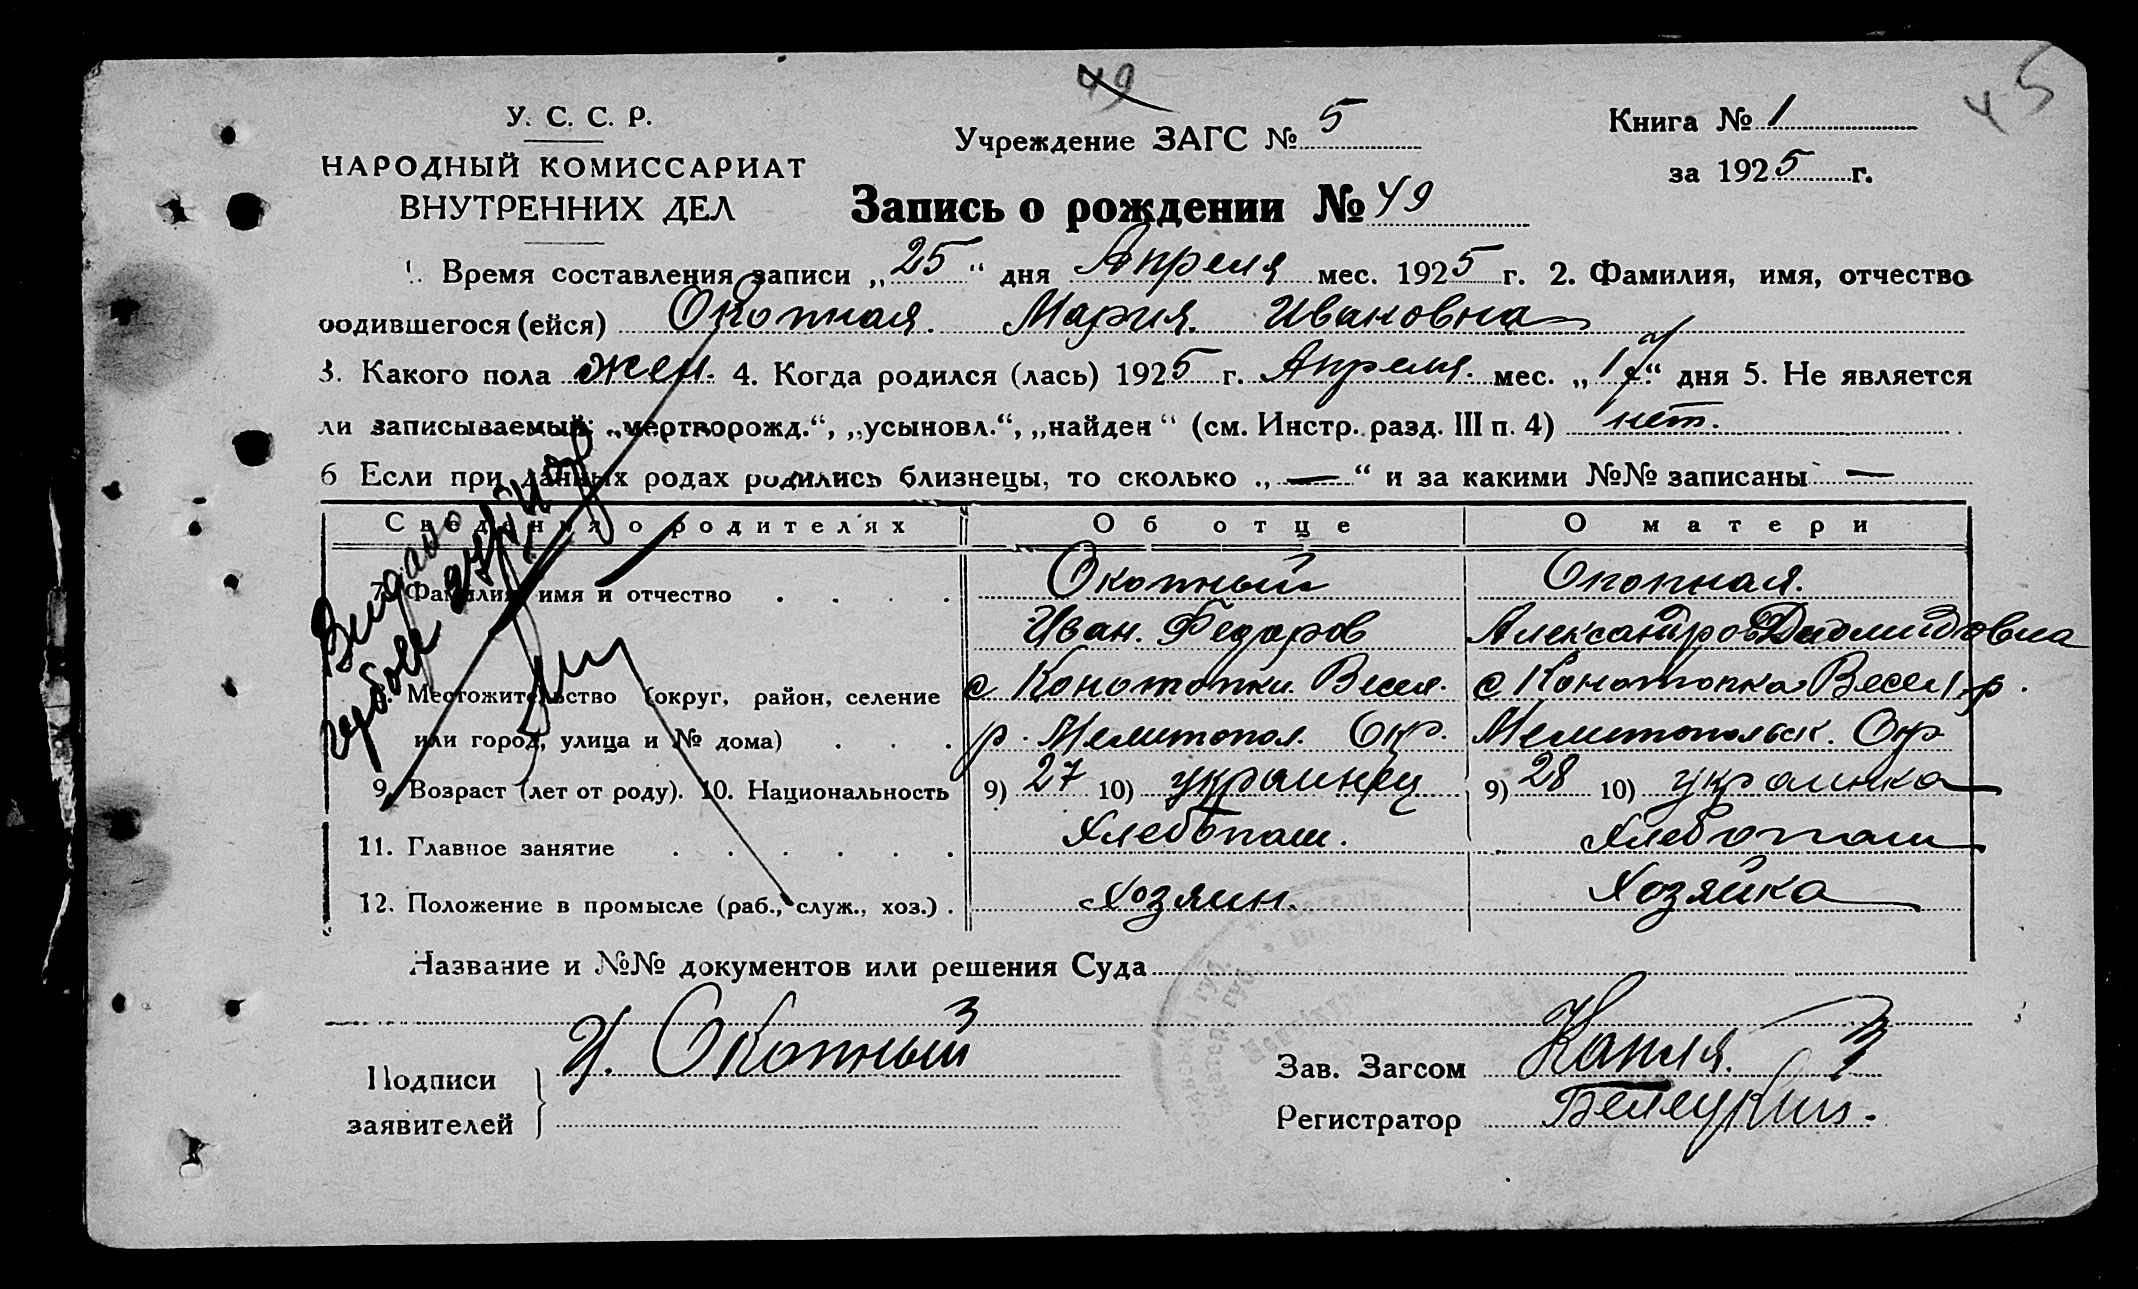 49
45
У. С. С. Р.
НАРОДНЫЙ КОМИССАРИАТ
ВНУТРЕННИХ ДЕЛ
Учреждение ЗАГС № 5
Книга № 1
за 1925 г.
Запись о рождении № 49
1. Время составления записи „25“ дня Апреля мес. 1925 г. 2. Фамилия, имя, отчество
родившегося (ейся) Окопная Мария Ивановна
3. Какого пола жен. 4. Когда родился (лась) 1925 г. Апреля. мес. „1“ дня 5. Не является
ли записываемый: „мертворожд.“, „усыновл.“, „найден“ (см. Инстр. разд. III п. 4) нет.
6 Если при данных родах родились близнецы, то сколько „—“ и за какими №№ записаны —
Сведения о родителях Об отце О матери
7. Фамилия, имя и отчество Окопный Окопная.
Иван. Федоров
Местожительство (округ, район, селение с Конотопки Весел. с Конотопка Весел. р.
или город, улица и № дома) р. Мелитопол. Окр. Мелитопольск. Окр
9. Возраст (лет от роду). 10. Национальность 9) 27 10) украинец 9) 28 10) украинка
11. Главное занятие Хлебопаш. Хлебопаш
12. Положение в промысле (раб., служ., хоз.) Хозяин. Хозяйка
Название и №№ документов или решения Суда
Подписи
заявителей
И. Окопный
Зав. Загсом Капля
Регистратор Белецкий
Видано